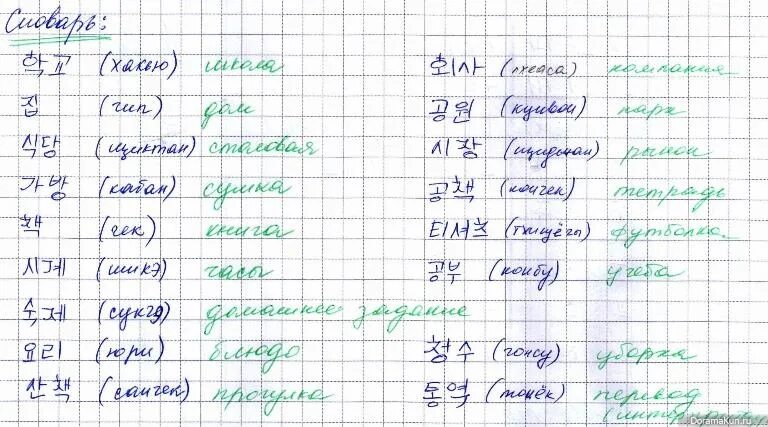 Словарь:
학교 (хакью) школа
집 (чип) дом
식당 (щиктан) столовая
가방 (кабан) сумка
책 (чек) книга
시계 (шикэ) часы
숙제 (сукчэ) домашнее задание
요리 (юри) блюдо
산책 (санчек) прогулка
회사 компания
공원 парк
시장 рынок
공책 (кончек) тетрадь
티셔츠 футболка
공부 (конбу) учёба
청수 (чонсу) уборка
통역 (тонёк) перевод
DoramaKun.ru